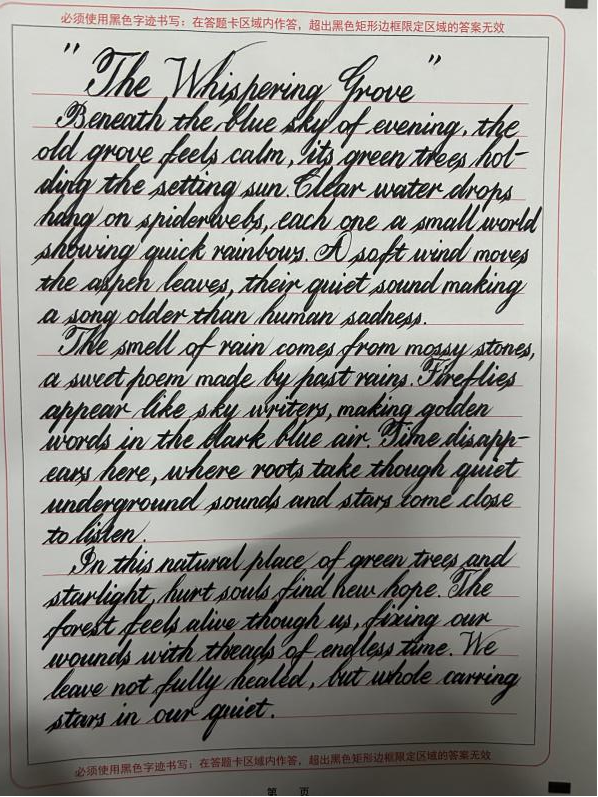 必须使用黑色字迹书写；在答题卡区域内作答，超出黑色矩形边框限定区域的答案无效
"The Whispering Grove"
Beneath the blue sky of evening, the
old grove feels calm, its green trees hol-
ding the setting sun. Clear water drops
hang on spiderwebs, each one a small world
showing quick rainbows. A soft wind moves
the aspen leaves, their quiet sound making
a song older than human sadness.
The smell of rain comes from mossy stones,
a sweet poem made by past rains. Fireflies
appear like sky writers, making golden
words in the dark blue air. Time disapp-
ears here, where roots take though quiet
underground sounds and stars come close
to listen.
In this natural place of green trees and
starlight, hurt souls find new hope. The
forest feels alive though us, fixing our
wounds with threads of endless time. We
leave not fully healed, but whole carring
stars in our quiet.
必须使用黑色字迹书写；在答题卡区域内作答，超出黑色矩形边框限定区域的答案无效
第 页